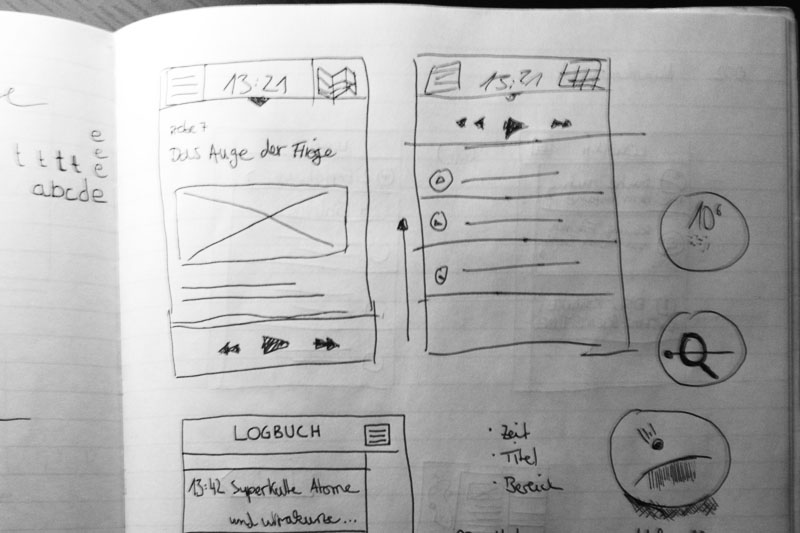 e
e
t t t t e
abcde
13:21
Das Auge der Fliege
13:21
10⁶
LOGBUCH
13:42 Superkalte Atome
und ultrakurze...
· Zeit
· Titel
· Bereich